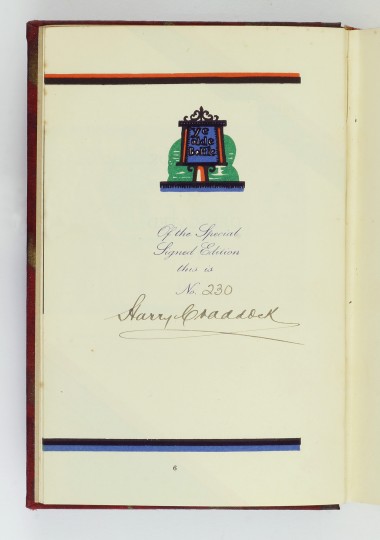 ye
olde
bottle
Of the Special
Signed Edition
this is
No. 230
Harry Craddock
6